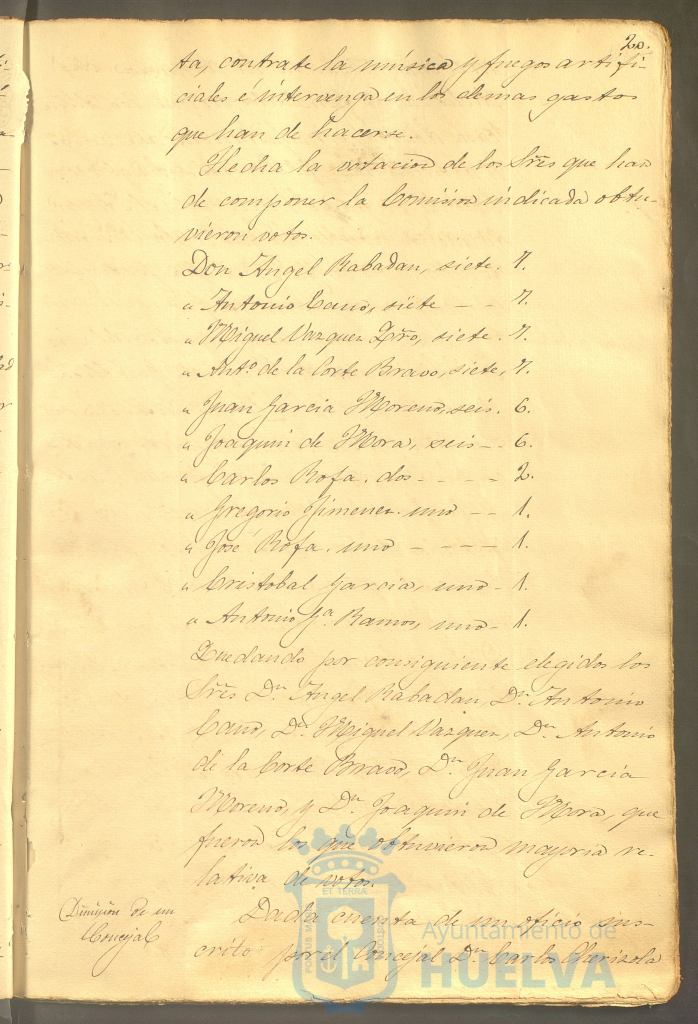 20.
ta, contrate la música y fuegos artifi-
ciales é intervenga en los demas gastos
que han de hacerse.
Hecha la votacion de los Sres que han
de componer la Comision indicada obtu-
vieron votos.
Don Angel Rabadan, siete. 7.
" Antonio Cano, siete - - 7.
" Miguel Vazquez siete. 7.
" Antº de la Corte Bravo, siete, 7.
" Juan Garcia Moreno, seis. 6.
" Joaquin de Mora, seis - . 6.
" Carlos Rofa. dos - - - - 2.
" Gregorio Jimenez. uno - - 1.
" José Rofa. uno - - - - 1.
" Cristobal Garcia, uno - 1.
" Antonio Gª. Ramos, uno - 1.
Quedando por consiguiente elegidos los
Sres Dn. Angel Rabadan, Dn. Antonio
Cano, Dn. Miguel Vazquez, Dn. Antonio
de la Corte Bravo, Dn. Juan Garcia
Moreno, y Dn. Joaquin de Mora, que
fueron los que obtuvieron mayoria re-
lativa de votos.
Dimision de un
Concejal
Dada cuenta de un oficio sus-
crito por el Concejal Dn. Carlos
PORTUS MARIS ET TERRAE CUSTODIA
Ayuntamiento de
HUELVA